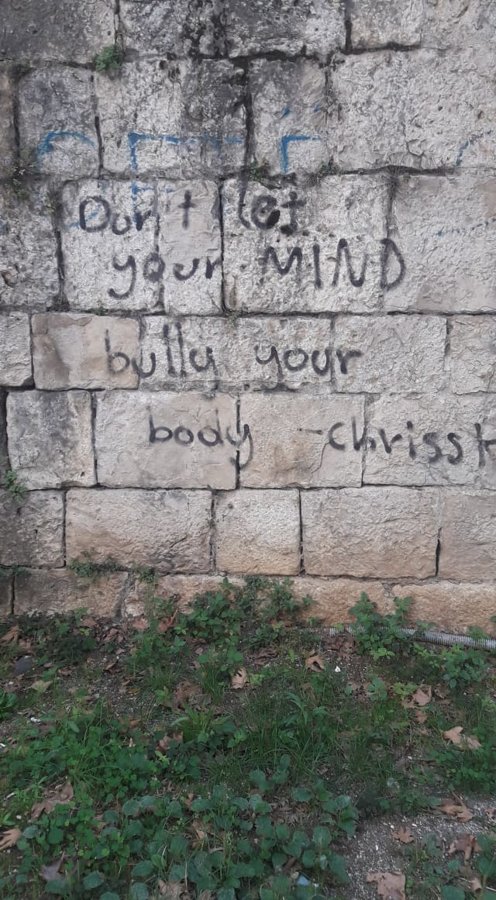 Don't let
your MIND
bully your
body -chrissk